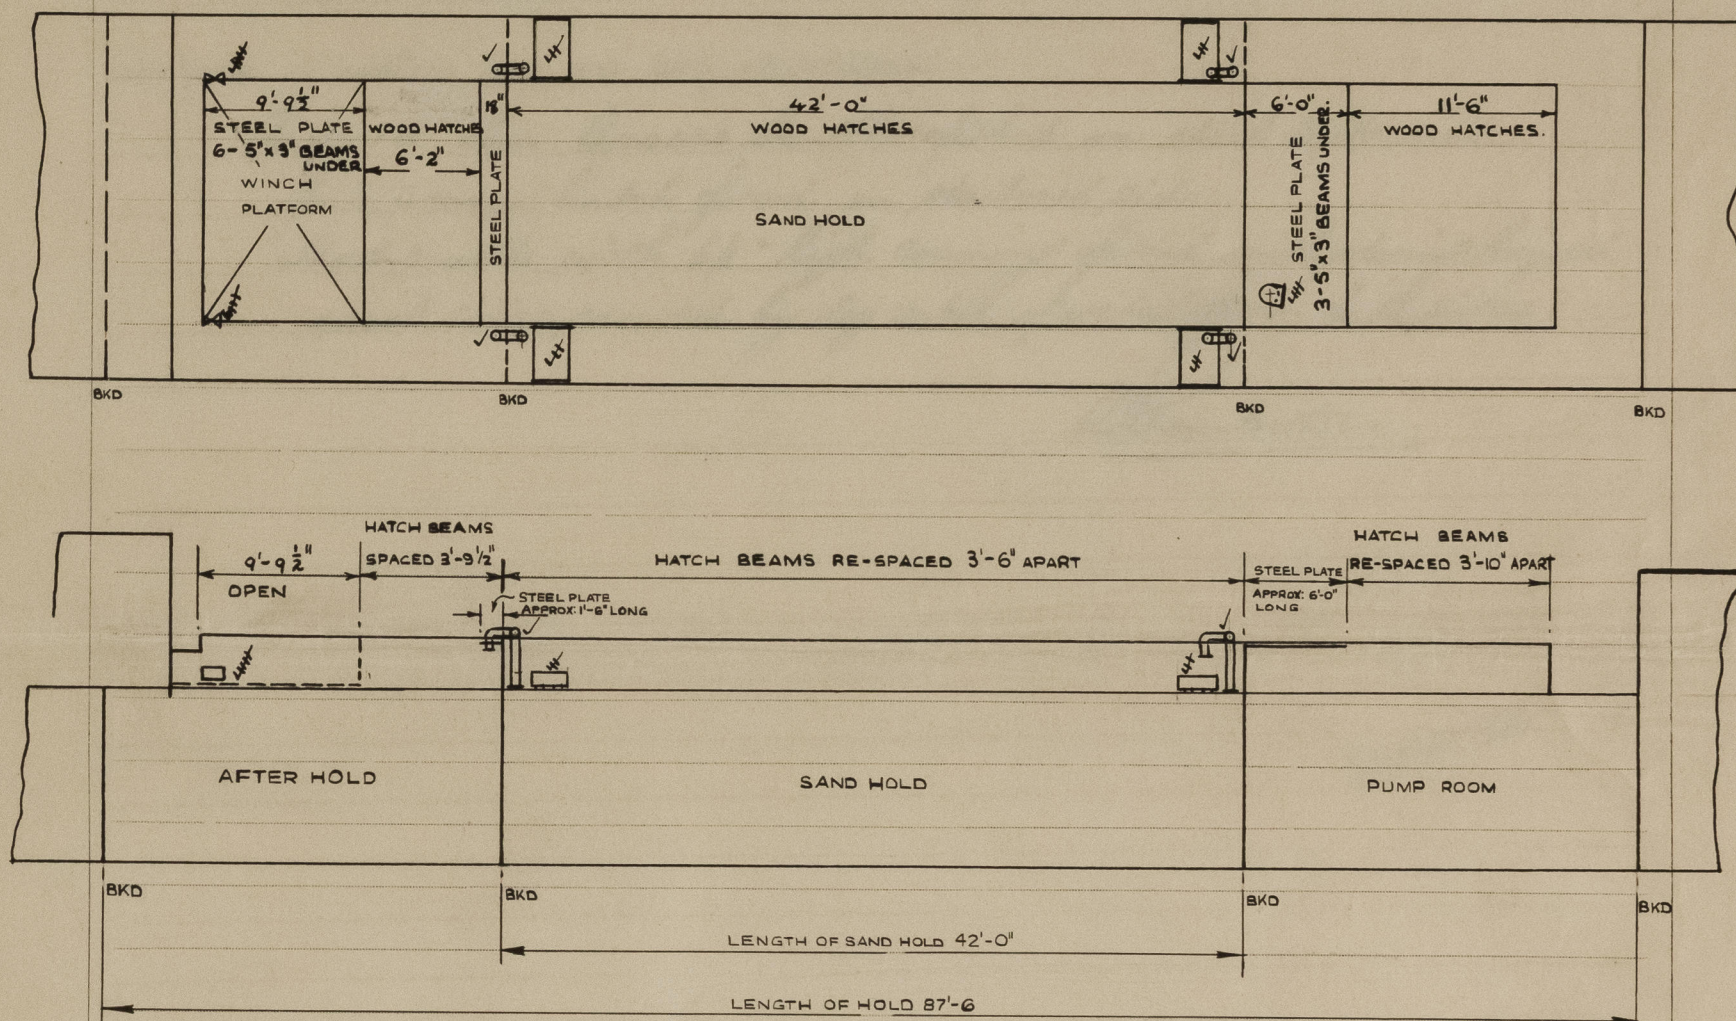 9'-9½"
STEEL PLATE
6-5"x3" BEAMS
UNDER
WINCH
PLATFORM
WOOD HATCHES
6'-2"
18"
STEEL PLATE
42'-0"
WOOD HATCHES
SAND HOLD
6'-0"
STEEL PLATE
3-5"x3" BEAMS UNDER.
11'-6"
WOOD HATCHES.
BKD
BKD
BKD
BKD
9'-9½"
OPEN
HATCH BEAMS
SPACED 3'-9½"
STEEL PLATE
APPROX: 1'-6" LONG
HATCH BEAMS RE-SPACED 3'-6" APART
STEEL PLATE
APPROX: 6'-0"
LONG
HATCH BEAMS
RE-SPACED 3'-10" APART
AFTER HOLD
SAND HOLD
PUMP ROOM
BKD
BKD
BKD
BKD
LENGTH OF SAND HOLD 42'-0"
LENGTH OF HOLD 87'-6